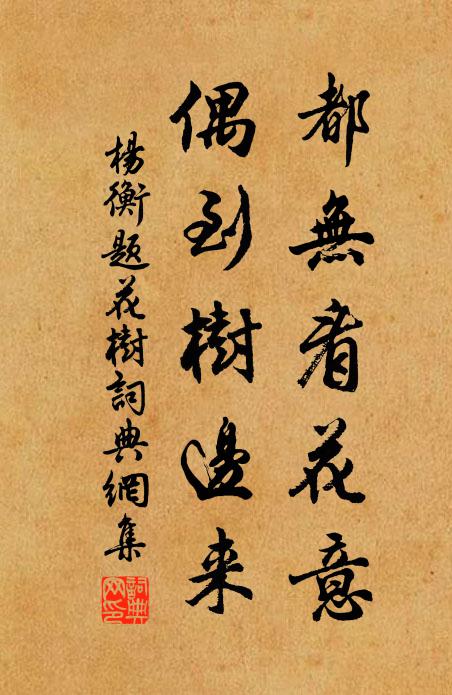 都無看花意
偶到樹邊来
楊衡題花樹詞典網集
詞典網印